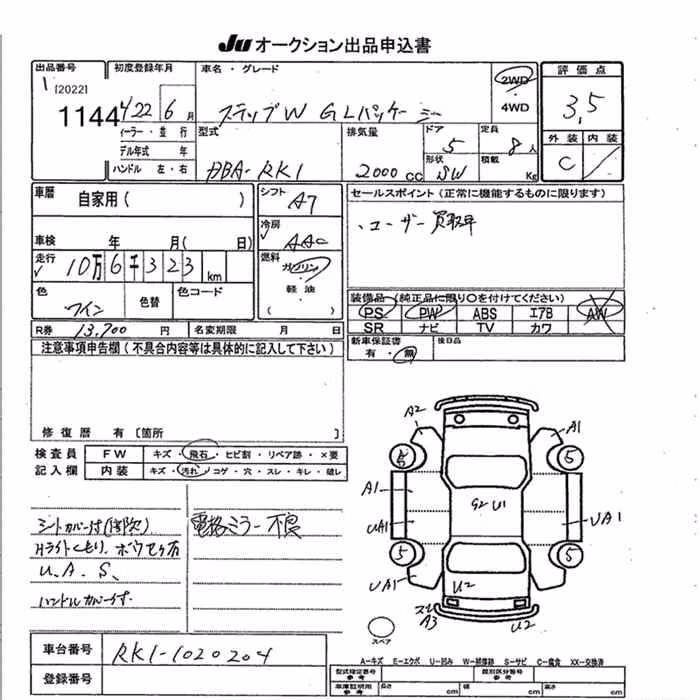 JU オークション出品申込書
出品番号 初度登録年月 車名・グレード 評価点
1 [2022]
1144 H22 6月 ステップW GLパッケージ 2WD 4WD 3,5
イーラー・並行 型式 排気量 ドア 定員 外装 内装
デル年式 年 5 8人 C
ハンドル 左・右 DBA-RK1 2000CC 形状 SW 積載 Kg
車暦 自家用( ) シフト A7 セールスポイント(正常に機能するものに限ります)
車検 年 月( 日) 冷房 AAC ・ユーザー買取車
走行 10万6千323km 燃料 ガソリン・軽油
色 ワイン 色替 色コード 装備品(純正品に限り○を付けてください)
PS PW ABS エアB AW
R券 13,700円 名変期限 月 日 SR ナビ TV カワ
注意事項申告欄(不具合内容等は具体的に記入して下さい) 新車保証書 有・無 後日品
修復歴 有〔箇所 〕
検査員 FW キズ・飛石・ヒビ割・リペア跡・×要
記入欄 内装 キズ・汚れ・コゲ・穴・スレ・キレ・破レ
シートカバー付(1部欠) 電格ミラー不良
Hライトくもり、ボウセキ有
U、A、S、
ハンドルカバー付
A2 A1
5 5
A1 G2 U1
UA1 UA1
5 5
UA1 U2
スレ A3 U2
スペア
車台番号 RK1-1020204
登録番号
A-キズ E-エクボ U-凹み W-補修跡 S-サビ C-腐食 XX-交換済
型式指定番号 参考 類別区分番号 参考
車庫証明用 参考 長さ cm 幅 cm 高さ cm